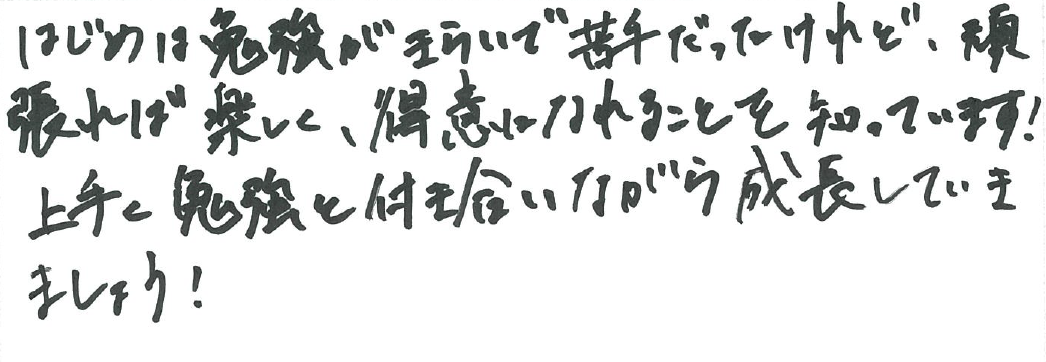 はじめは勉強がきらいで苦手だったけれど、頑
張れば楽しく、得意になれることを知っています!
上手く勉強と付き合いながら成長していき
ましょう!